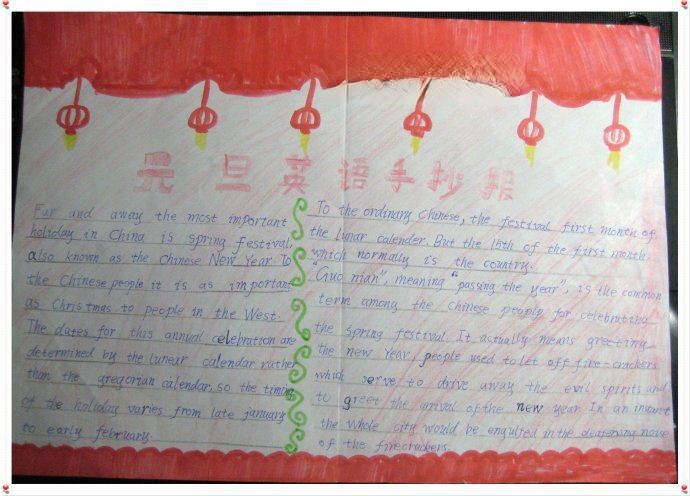 元旦英语手抄报
Fur and away the most important
holiday in China is spring festival,
also known as the Chinese New Year. To
the Chinese people it is as important
as Christmas to people in the West.
The dates for this annual celebration are
determined by the lunear calendar rather
than the gregorian calendar, so the timing
of the holiday varies from late january
to early february.
To the ordinary Chinese, the festival first month of
the lunar calender. But the 15th of the first month
which normally is the country.
"Guo nian", meaning "passing the year", is the common
term among the Chinese people for celebrating
the spring festival. It actually means greeting
the new Year, people used to let off fire-crackers
which serve to drive away the evil spirits and
to greet the arrival of the new year. In an instant
the whole city would be engulfed in the deafening noise
of the firecrackers.